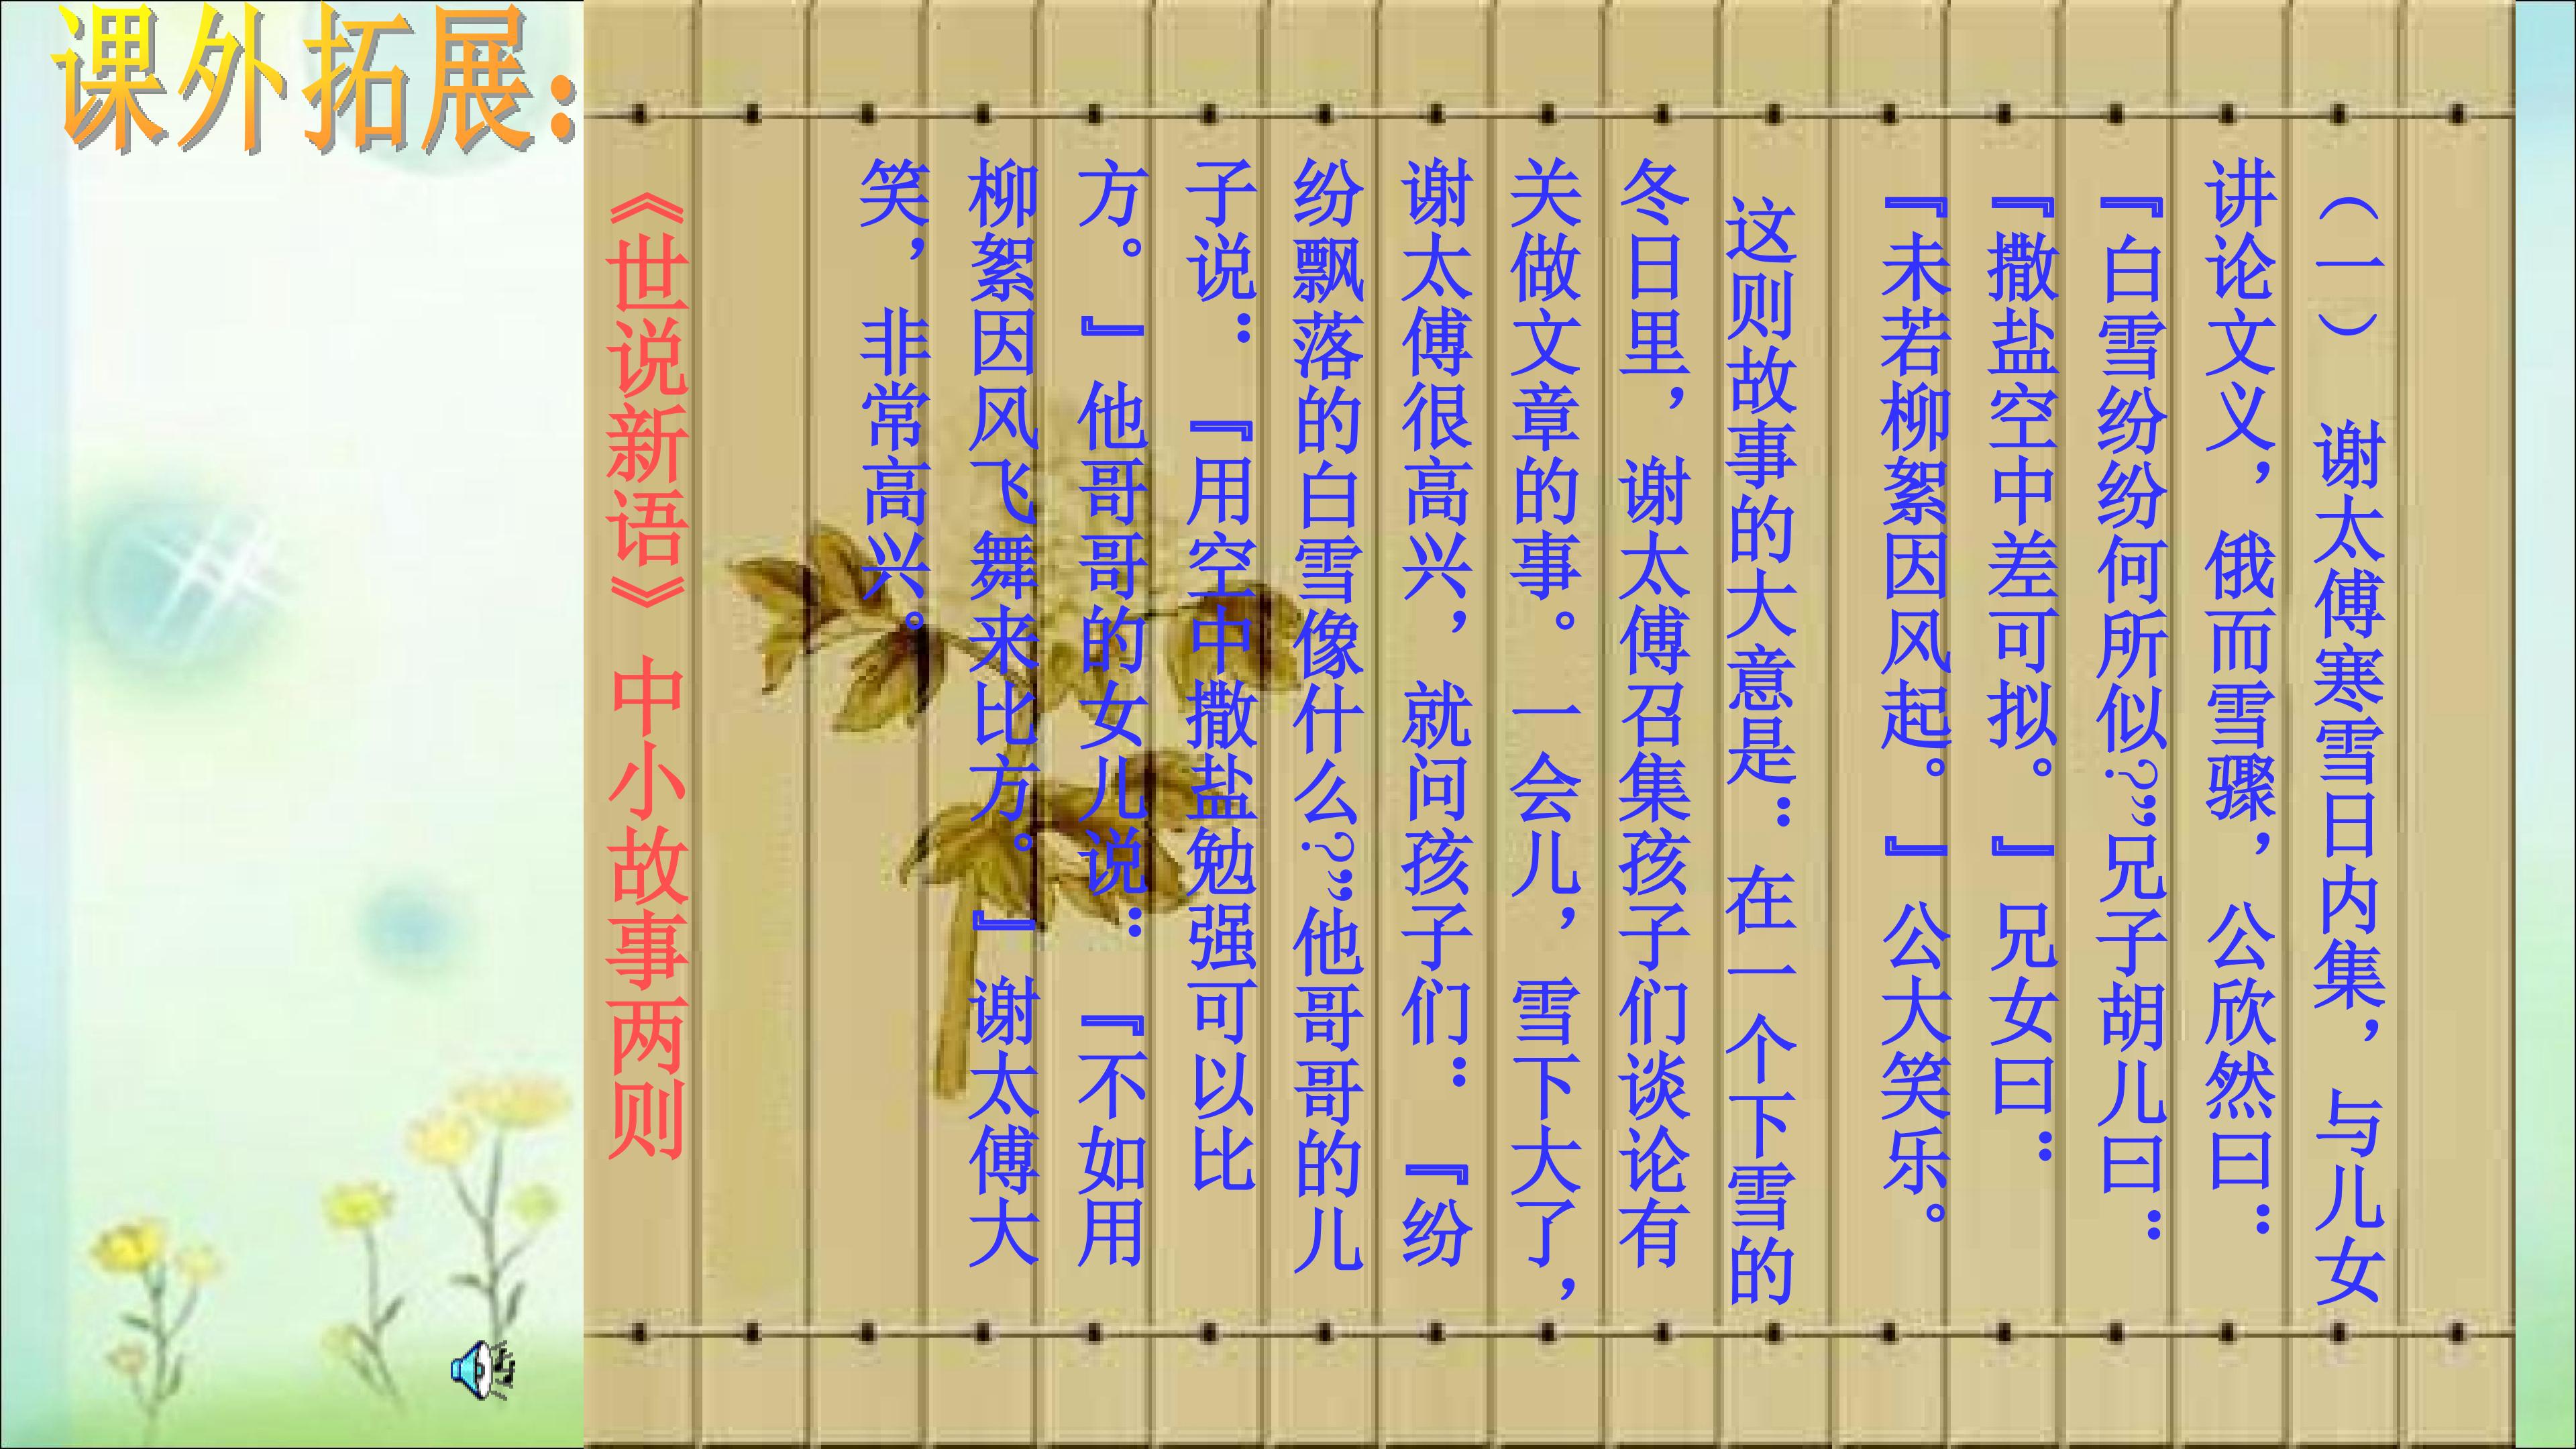 课外拓展：
（一） 谢太傅寒雪日内集，与儿女
讲论文义，俄而雪骤，公欣然曰：
『白雪纷纷何所似?”兄子胡儿曰：
『撒盐空中差可拟。』兄女曰：
『未若柳絮因风起。』公大笑乐。
这则故事的大意是：在一个下雪的
冬日里，谢太傅召集孩子们谈论有
关做文章的事。一会儿，雪下大了，
谢太傅很高兴，就问孩子们：『纷
纷飘落的白雪像什么?”他哥哥的儿
子说：『用空中撒盐勉强可以比
方。』他哥哥的女儿说：『不如用
柳絮因风飞舞来比方。』谢太傅大
笑，非常高兴。
《世说新语》中小故事两则